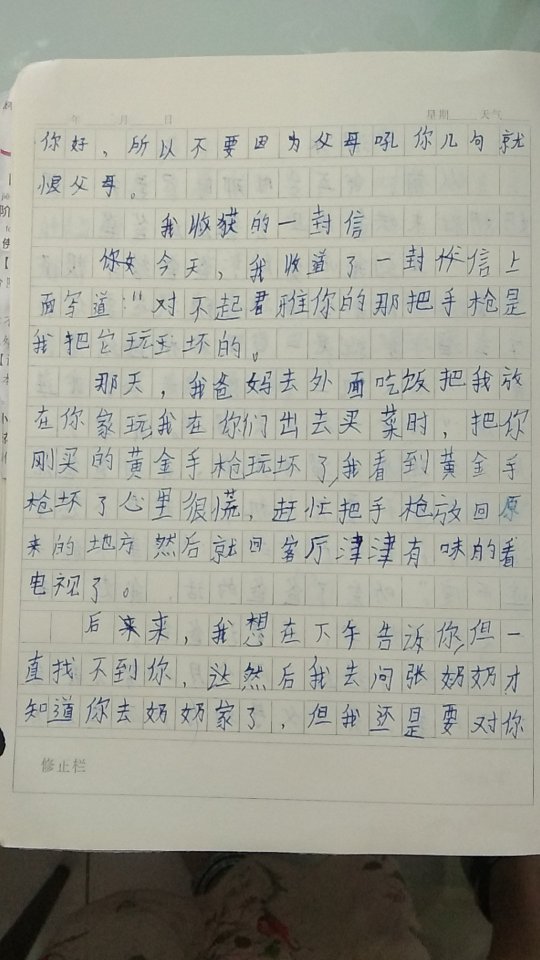 年 月 日 星期 天气
你好，所以不要因为父母吼你几句就
恨父母。
我收获的一封信
你好今天，我收道了一封信上
面写道："对不起君雅你的那把手枪是
我把它玩坏的。
那天，我爸妈去外面吃饭把我放
在你家玩，我在你们出去买菜时，把你
刚买的黄金手枪玩坏了，我看到黄金手
枪坏了心里很慌，赶忙把手枪放回原
来的地方然后就回客厅津津有味的看
电视了。
后来，我想在下午告诉你，但一
直找不到你，然后我去问张奶奶才
知道你去奶奶家了，但我还是要对你
修正栏